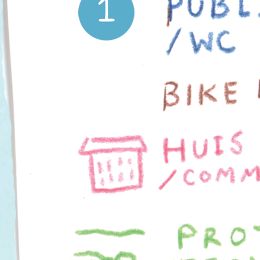 1
PUBL
/WC
BIKE
HUIS
/COMM
PRO